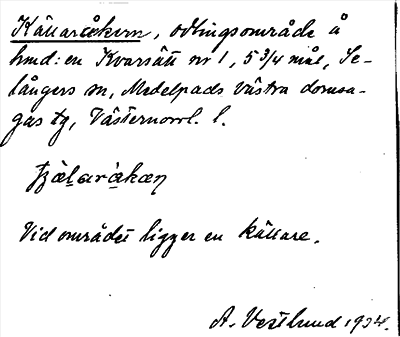 Källaråkern, odlingsområde å
hmd: en Kvarsätt nr 1, 5 3/4 mål, Se-
långers sn, Medelpads västra domsa-
gas tg, Västernorrl. l.
Vid området ligger en källare.
A. Vestlund 1934.